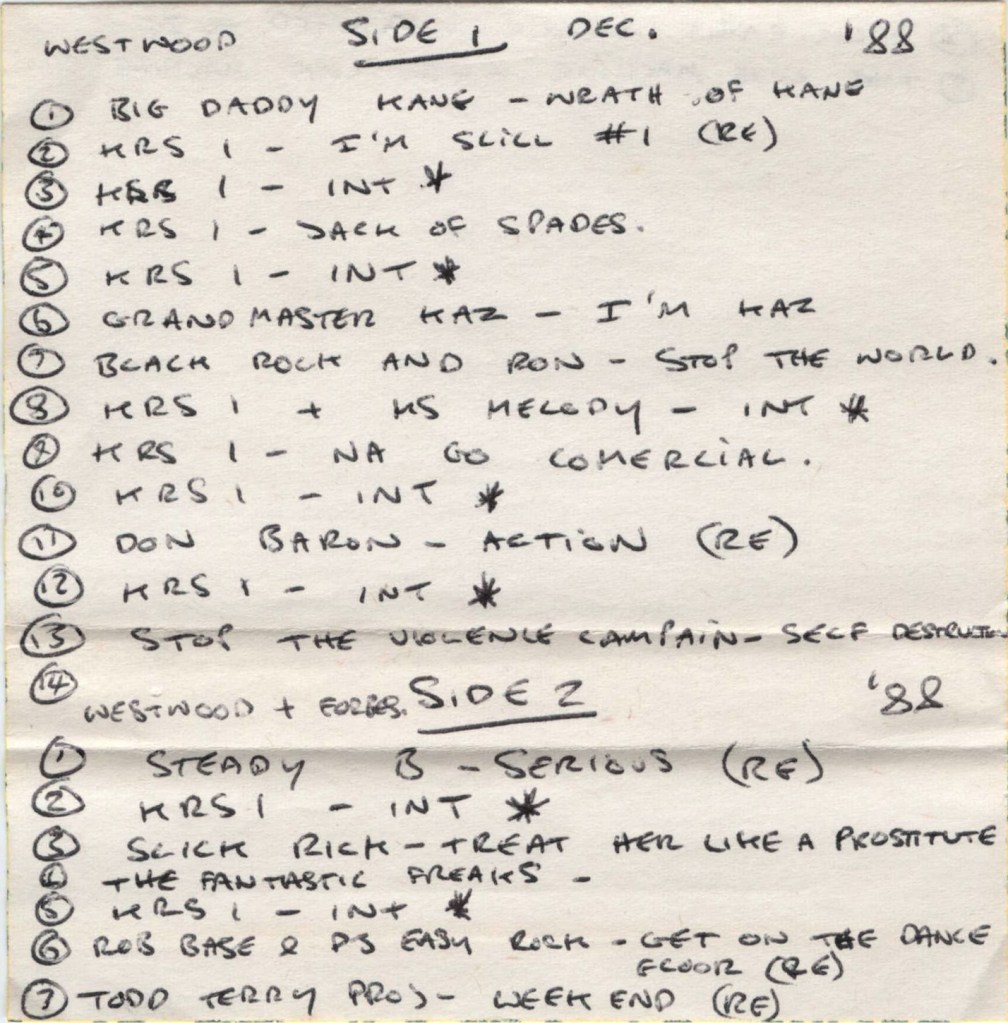 WESTWOOD SIDE 1 DEC. '88
① BIG DADDY KANE - WRATH OF KANE
② KRS 1 - I'M SLILL #1 (RE)
③ KRS 1 - INT *
④ KRS 1 - JACK OF SPADES.
⑤ KRS 1 - INT *
⑥ GRANDMASTER KAZ - I'M KAZ
⑦ BLACK ROCK AND RON - STOP THE WORLD.
⑧ KRS 1 + MS MELODY - INT *
⑨ KRS 1 - NA GO COMERCIAL.
⑩ KRS 1 - INT *
⑪ DON BARON - ACTION (RE)
⑫ KRS 1 - INT *
⑬ STOP THE VIOLENCE CAMPAIN - SELF
⑭ WESTWOOD + SIDE 2 '88
① STEADY B - SERIOUS (RE)
② KRS 1 - INT *
③ SLICK RICK - TREAT HER LIKE A PROSTITUTE
④ THE FANTASTIC FREAKS -
⑤ KRS 1 - INT *
⑥ ROB BASE & DJ EASY ROCK - GET ON THE DANCE
FLOOR (RE)
⑦ TODD TERRY PROJ - WEEKEND (RE)